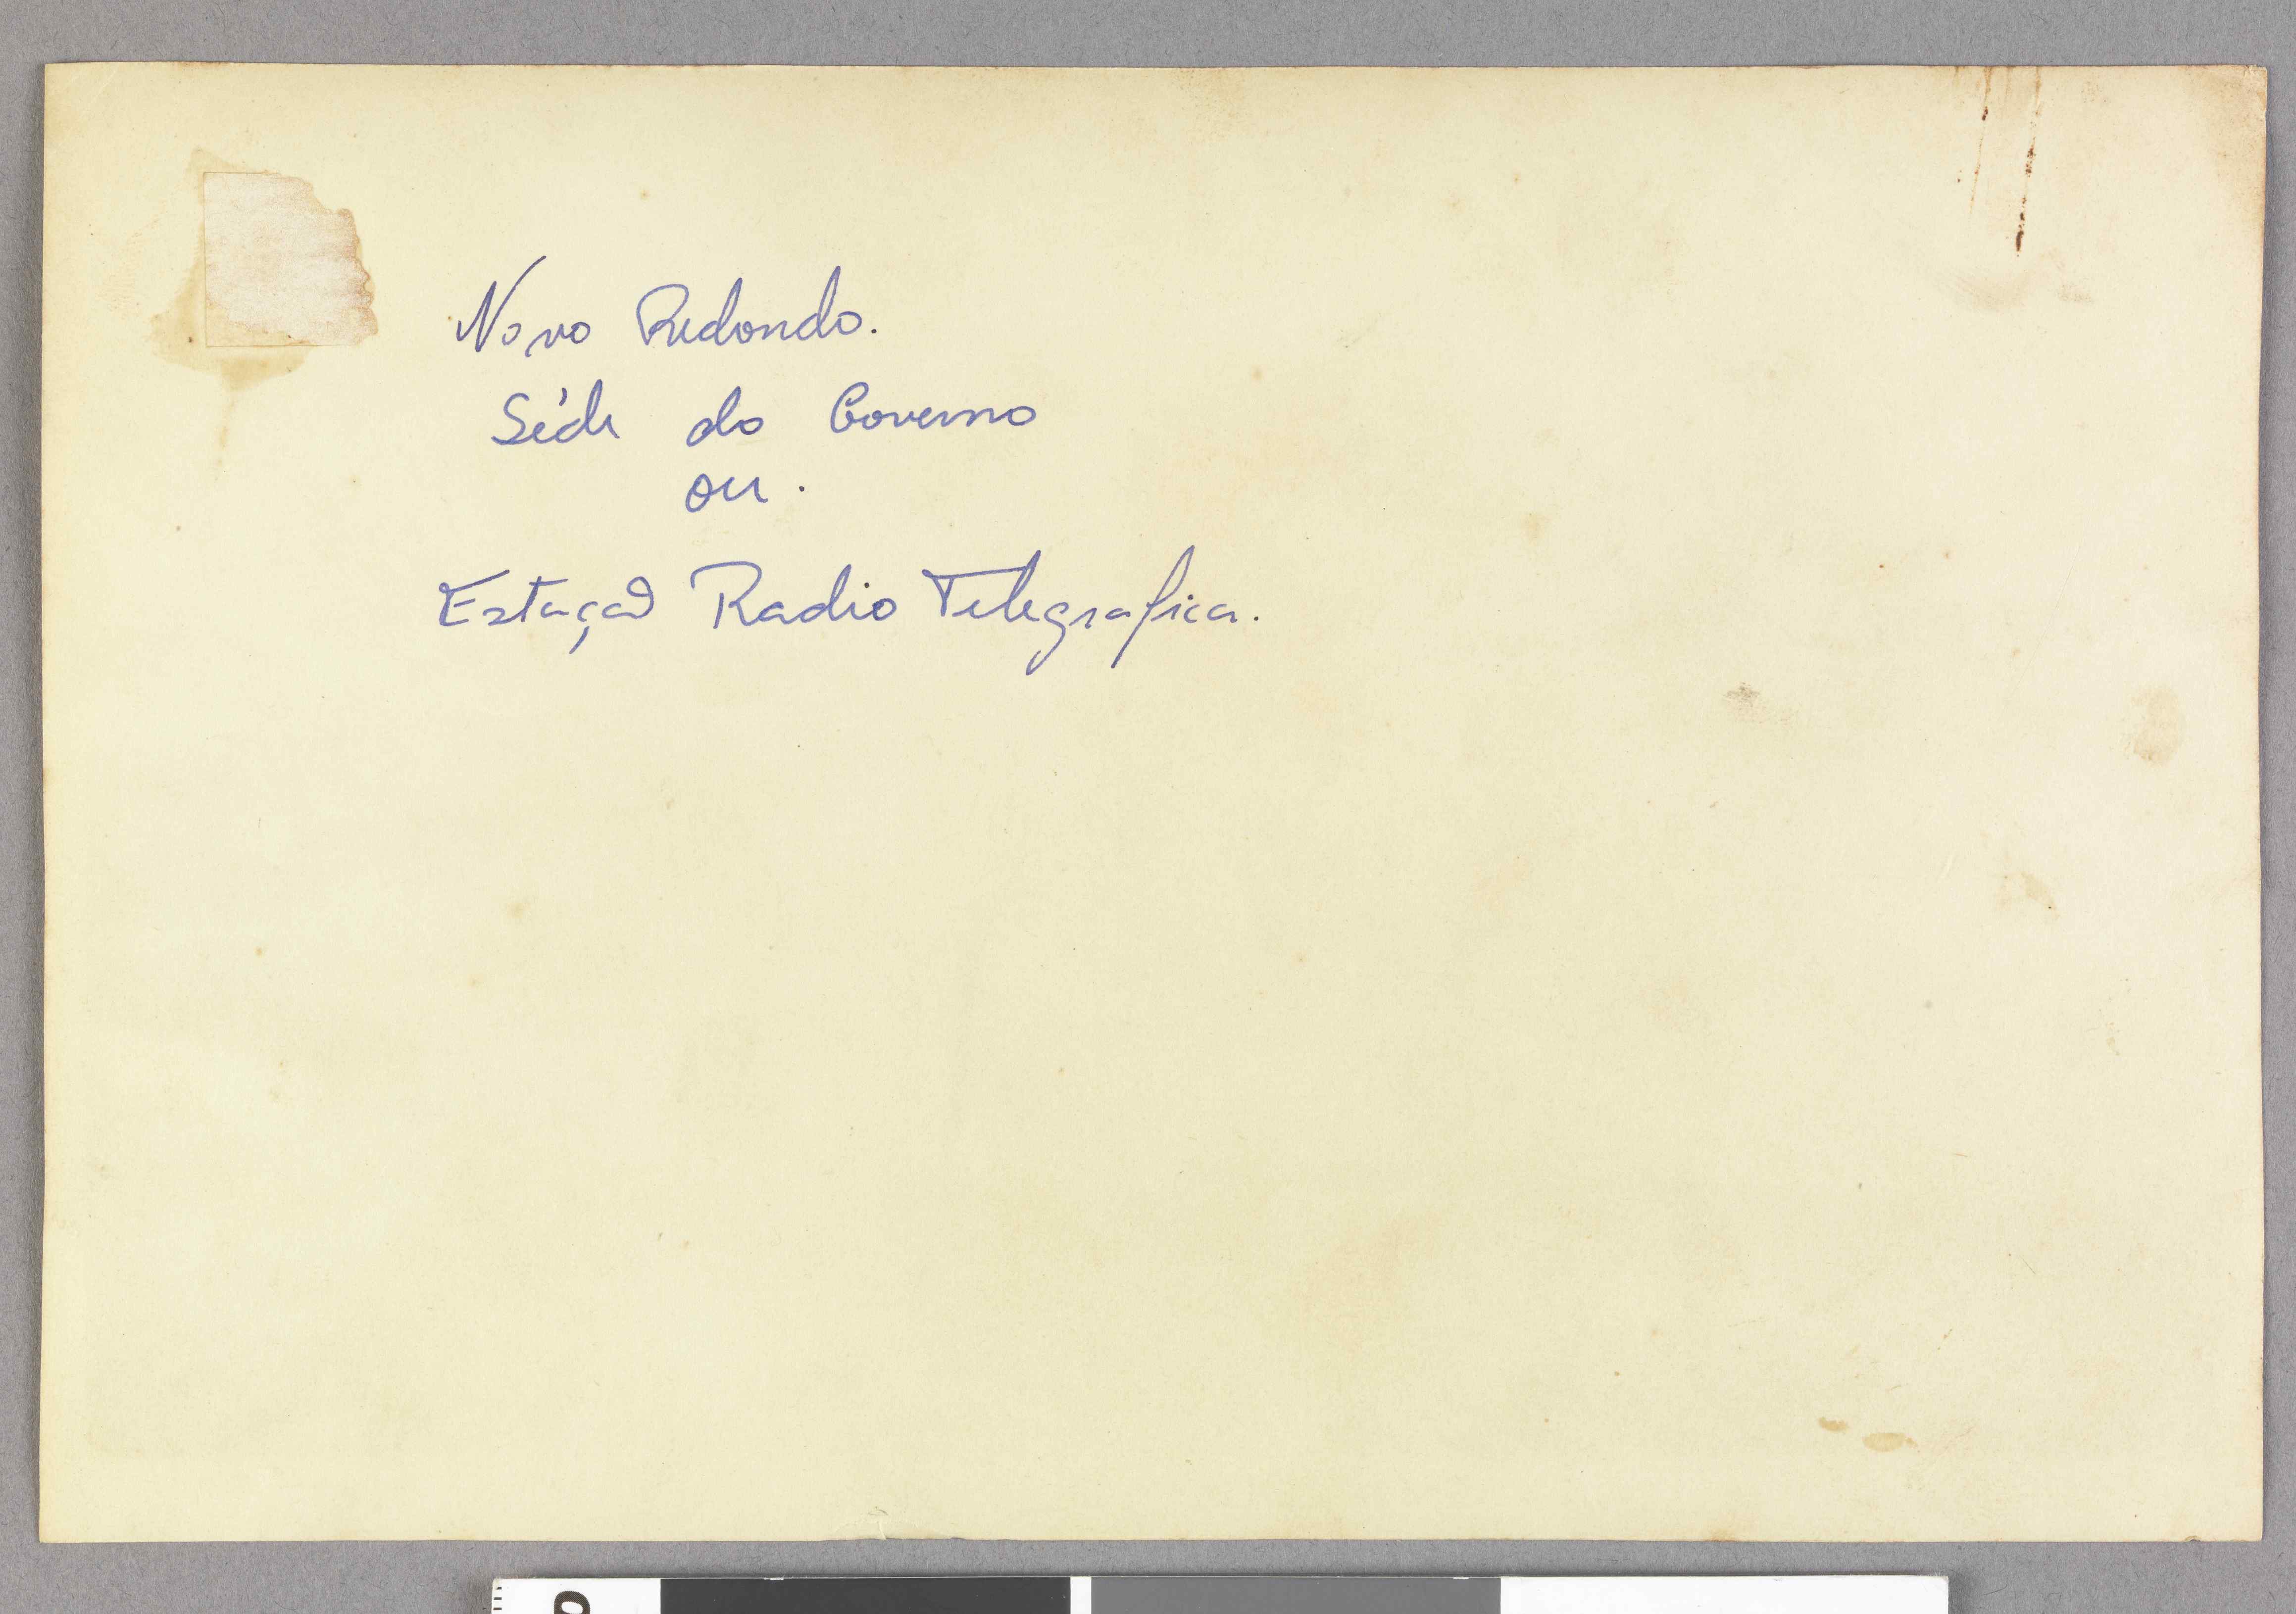 Novo Redondo.
Séde do Governo
ou.
Estação Radio Telegrafica.